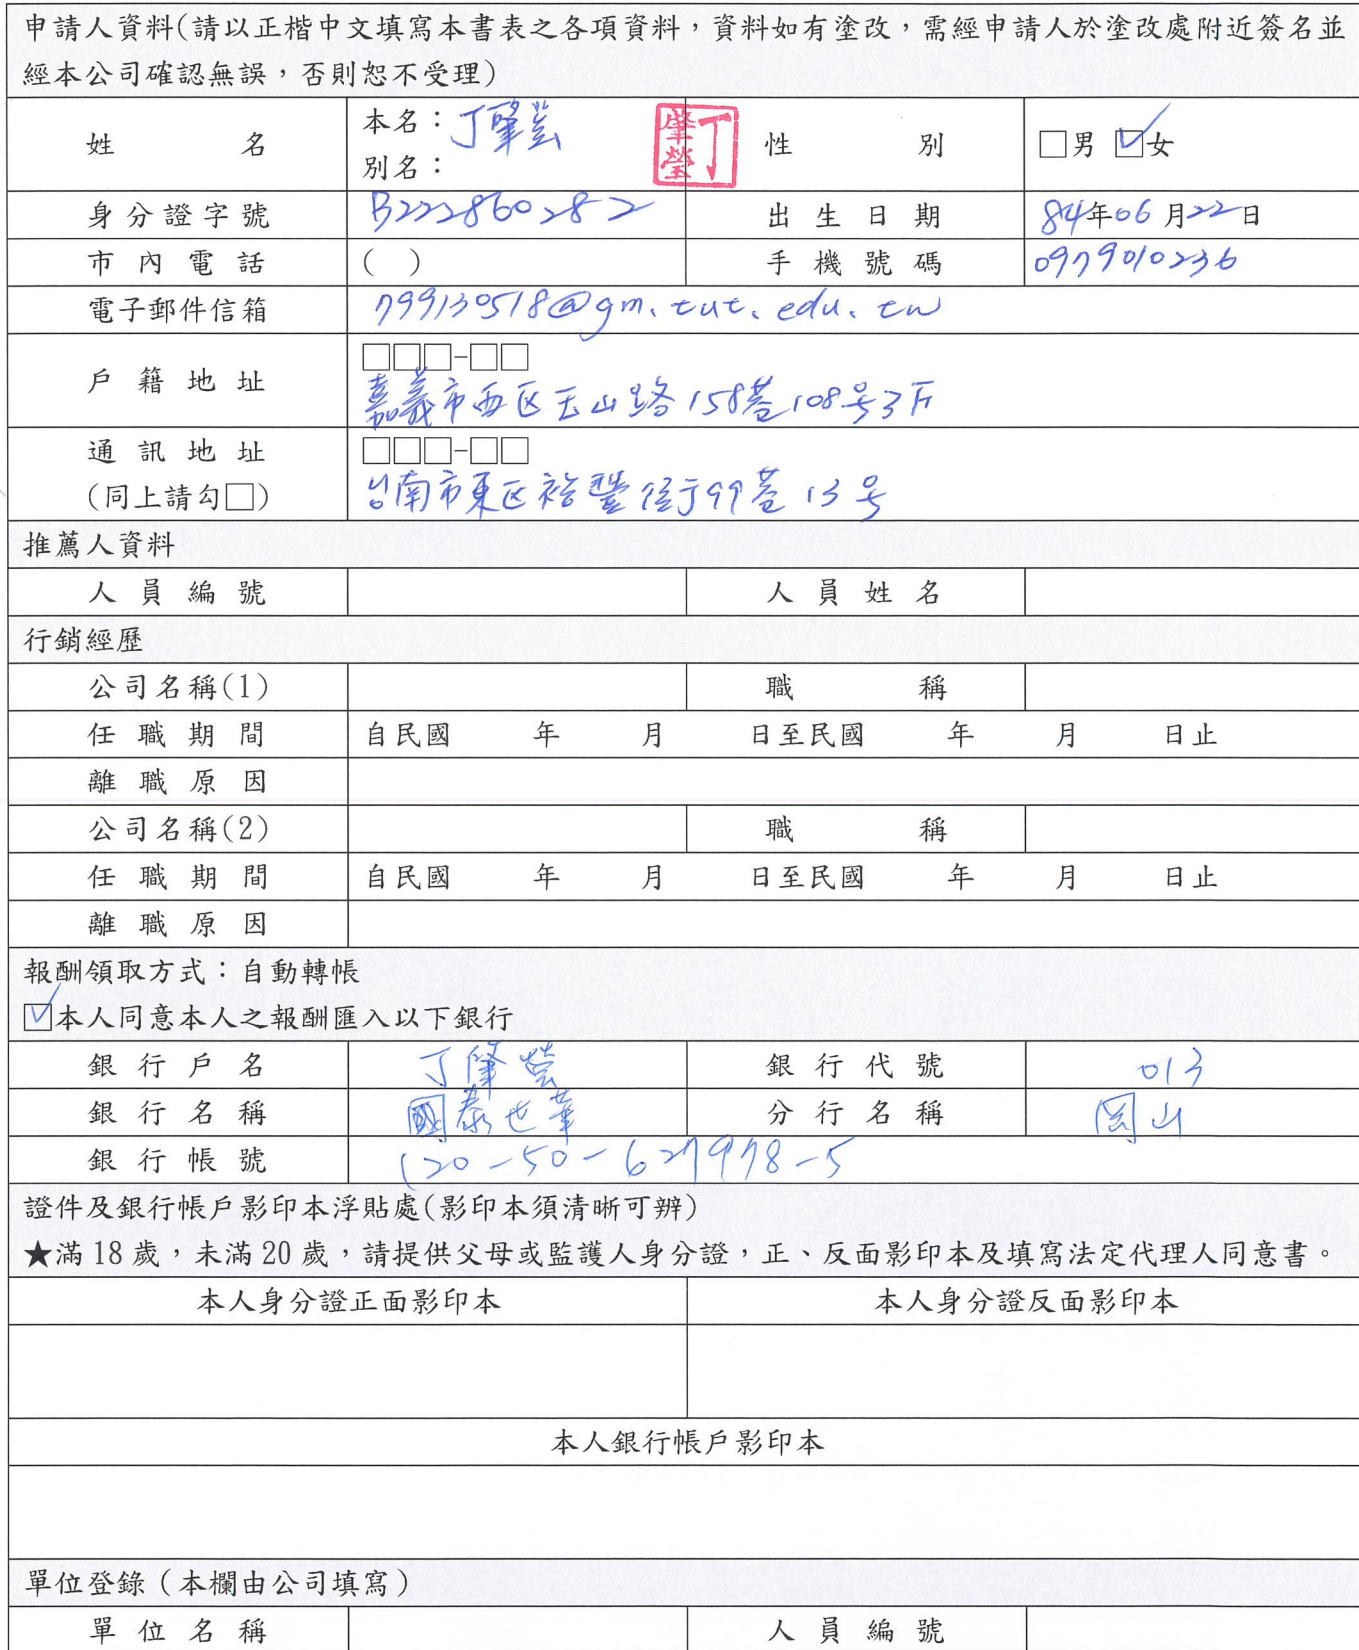 申請人資料(請以正楷中文填寫本書表之各項資料，資料如有塗改，需經申請人於塗改處附近簽名並
經本公司確認無誤，否則恕不受理)
姓 名 本名：丁肇瑩 丁肇瑩 性 別 □男 ☑女
別名：
身分證字號 B222860282 出生日期 84年06月22日
市內電話 ( ) 手機號碼 0979010236
電子郵件信箱 799130518@gm.tut.edu.tw
戶籍地址 □□□-□□
嘉義市西区玉山路158巷108号3F
通訊地址 □□□-□□
(同上請勾□) 台南市東区裕豐街99巷13号
推薦人資料
人員編號 人員姓名
行銷經歷
公司名稱(1) 職 稱
任職期間 自民國 年 月 日至民國 年 月 日止
離職原因
公司名稱(2) 職 稱
任職期間 自民國 年 月 日至民國 年 月 日止
離職原因
報酬領取方式：自動轉帳
☑本人同意本人之報酬匯入以下銀行
銀行戶名 丁肇瑩 銀行代號 013
銀行名稱 國泰世華 分行名稱 岡山
銀行帳號 120-50-627978-5
證件及銀行帳戶影印本浮貼處(影印本須清晰可辨)
★滿18歲，未滿20歲，請提供父母或監護人身分證，正、反面影印本及填寫法定代理人同意書。
本人身分證正面影印本 本人身分證反面影印本
本人銀行帳戶影印本
單位登錄（本欄由公司填寫）
單位名稱 人員編號